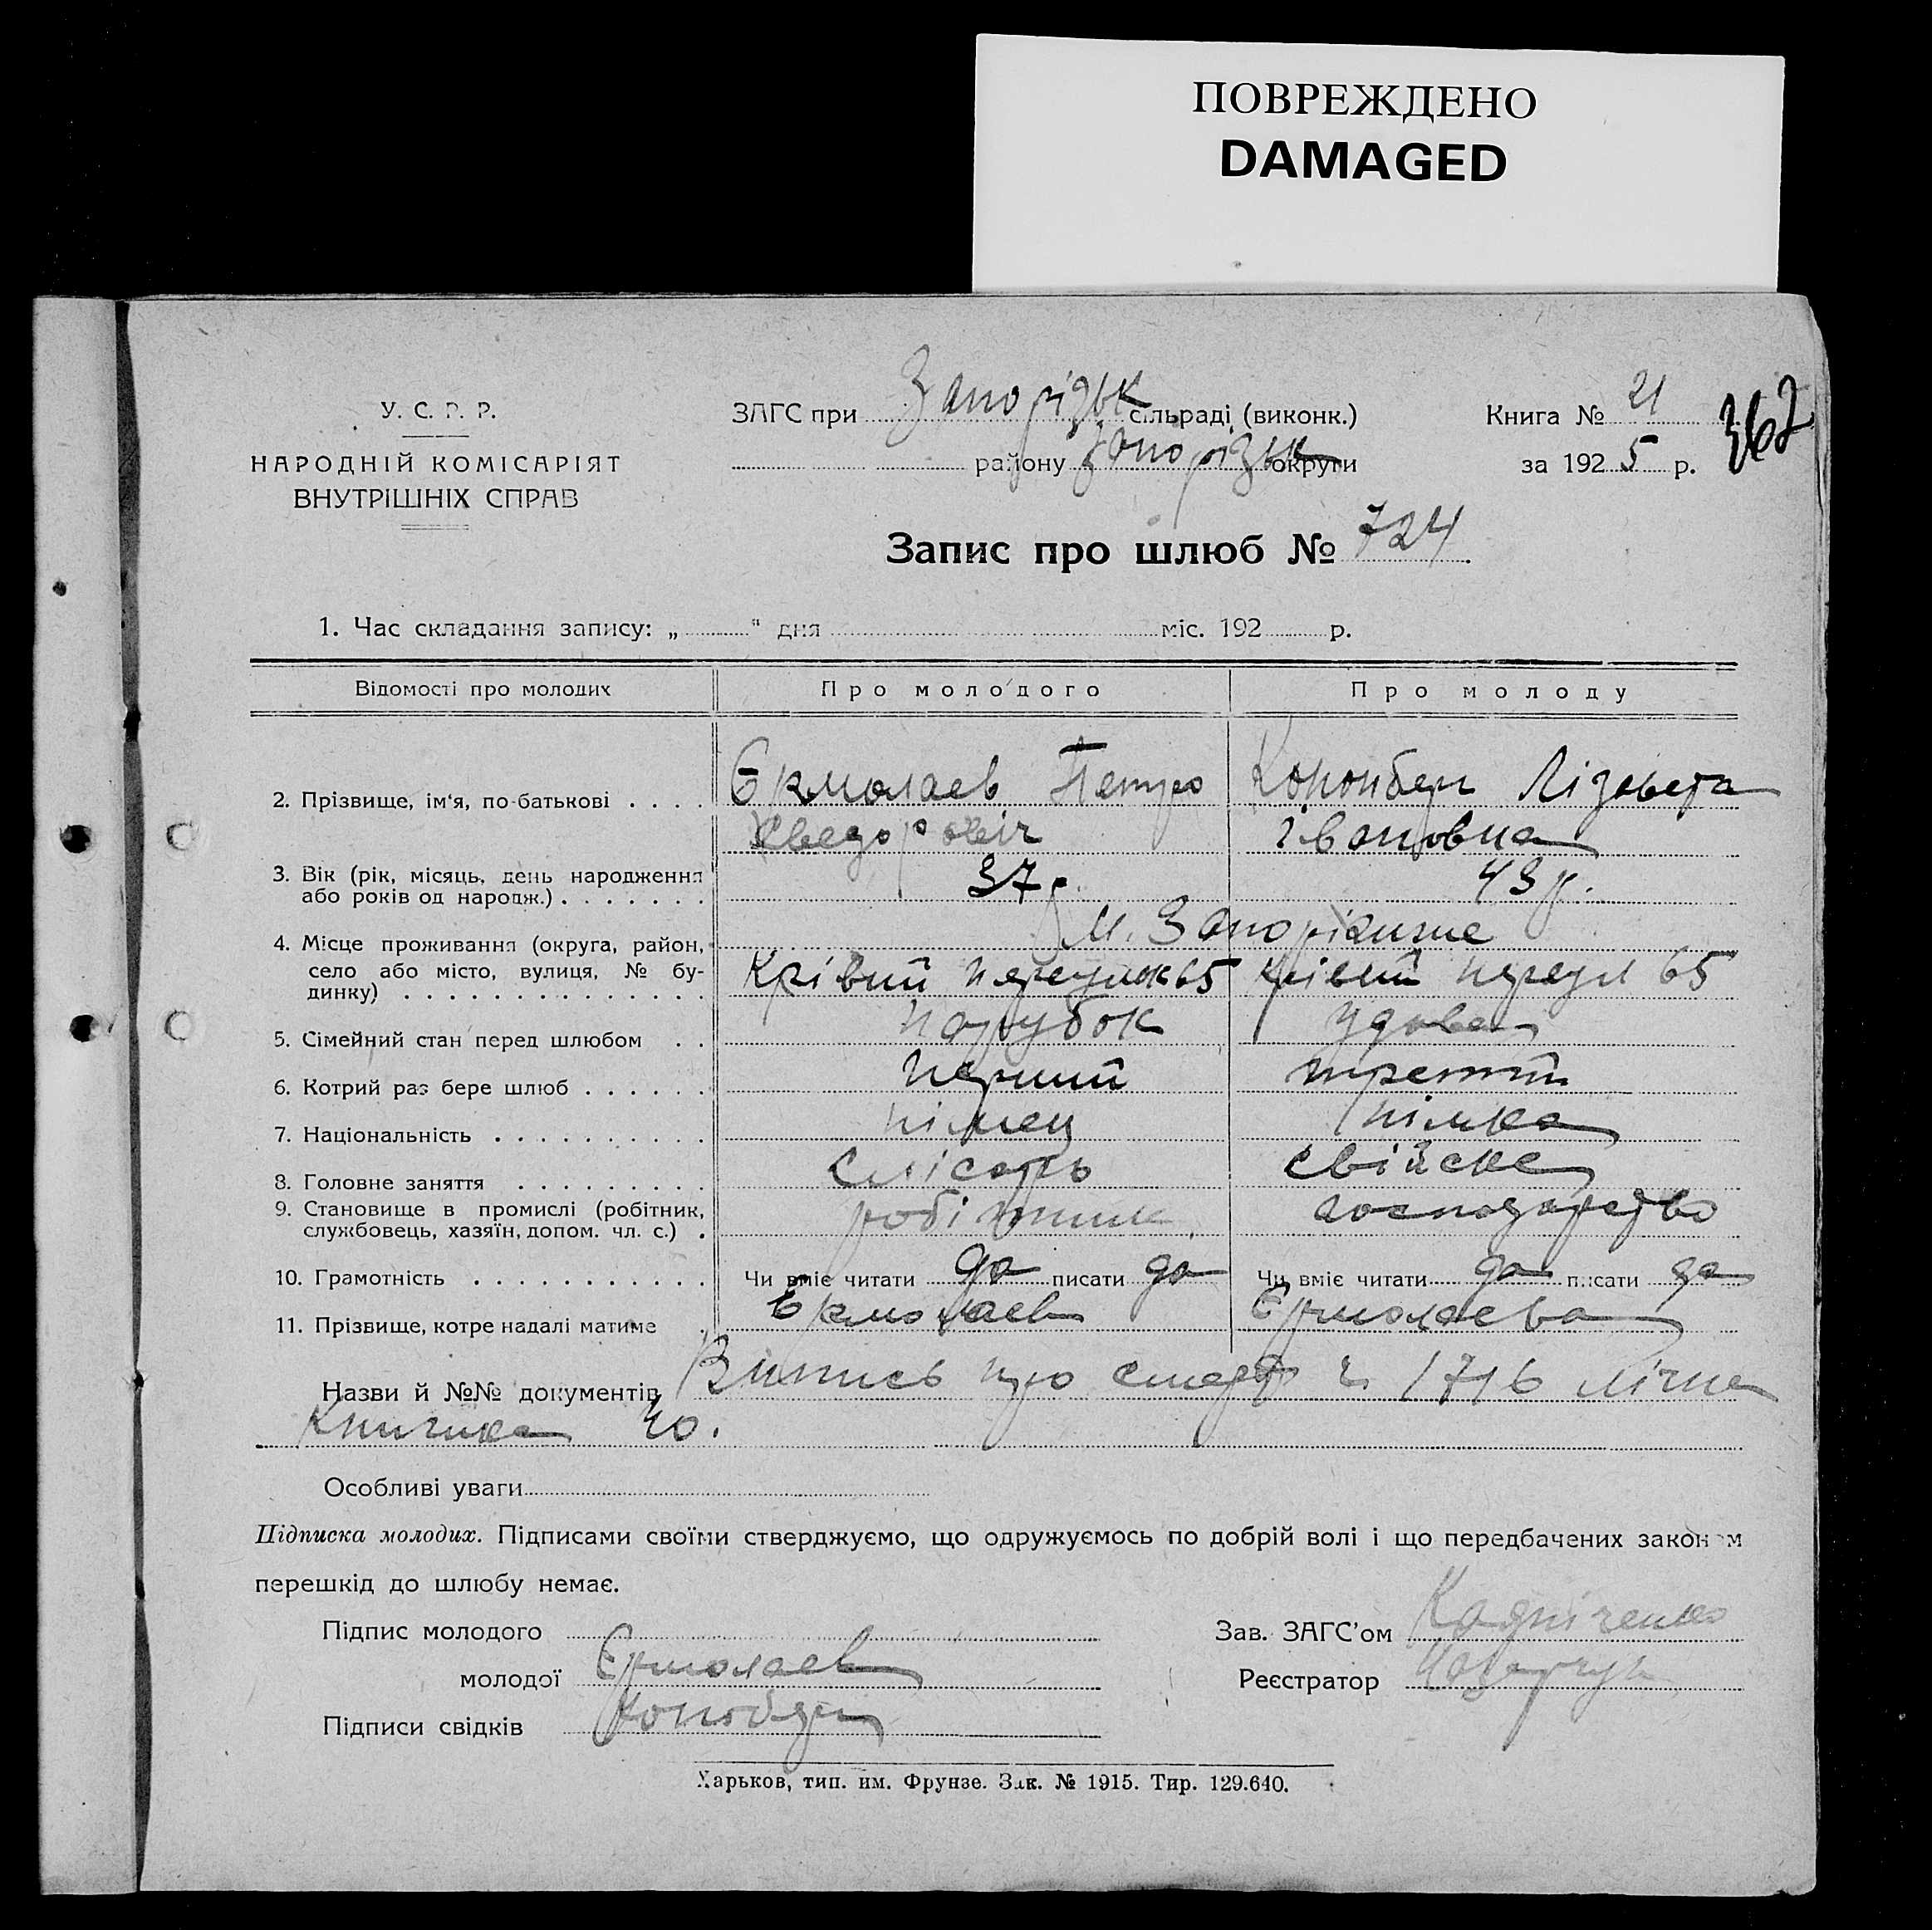 ПОВРЕЖДЕНО
DAMAGED
У. С. Р. Р.
НАРОДНІЙ КОМІСАРІЯТ
ВНУТРІШНІХ СПРАВ
ЗАГС при Запорізьк сільраді (виконк.)
району Запорізьк округи
Книга № 21
за 1925 р.
362
Запис про шлюб № 724
1. Час складання запису: „ “ дня міс. 192 р.
Відомості про молодих Про молодого Про молоду
2. Прізвище, ім‘я, по-батькові . . . . Єрмолаев Петро Кононберг Лізавета
Хведоровіч Івановна
3. Вік (рік, місяць, день народження
або років од народж.) . . . . . . . 37 р. 43 р.
4. Місце проживання (округа, район, М. Запоріжже
село або місто, вулиця, № бу-
динку) . . . . . . . . . . . . . . Крівий переулок 65 Крівий переул 65
5. Сімейний стан перед шлюбом . . парубок удова
6. Котрий раз бере шлюб . . . . . . перший третій
7. Національність . . . . . . . . . . німец німка
8. Головне заняття . . . . . . . . . слісарь свійске
9. Становище в промислі (робітник,
службовець, хазяїн, допом. чл. с.) . робітник господарство
10. Грамотність . . . . . . . . . . . Чи вміє читати да писати да Чи вміє читати да писати да
11. Прізвище, котре надалі матиме Єрмолаев Єрмолаева
Назви й №№ документів Випись про смерть ч. 1716 лічна
книжка 40.
Особливі уваги
Підписка молодих. Підписами своїми стверджуємо, що одружуємось по добрій волі і що передбачених законом
перешкід до шлюбу немає.
Підпис молодого
молодої Єрмолаев
Підписи свідків
Зав. ЗАГС’ом
Реєстратор
Харьков, тип. им. Фрунзе. Зак. № 1915. Тир. 129.640.